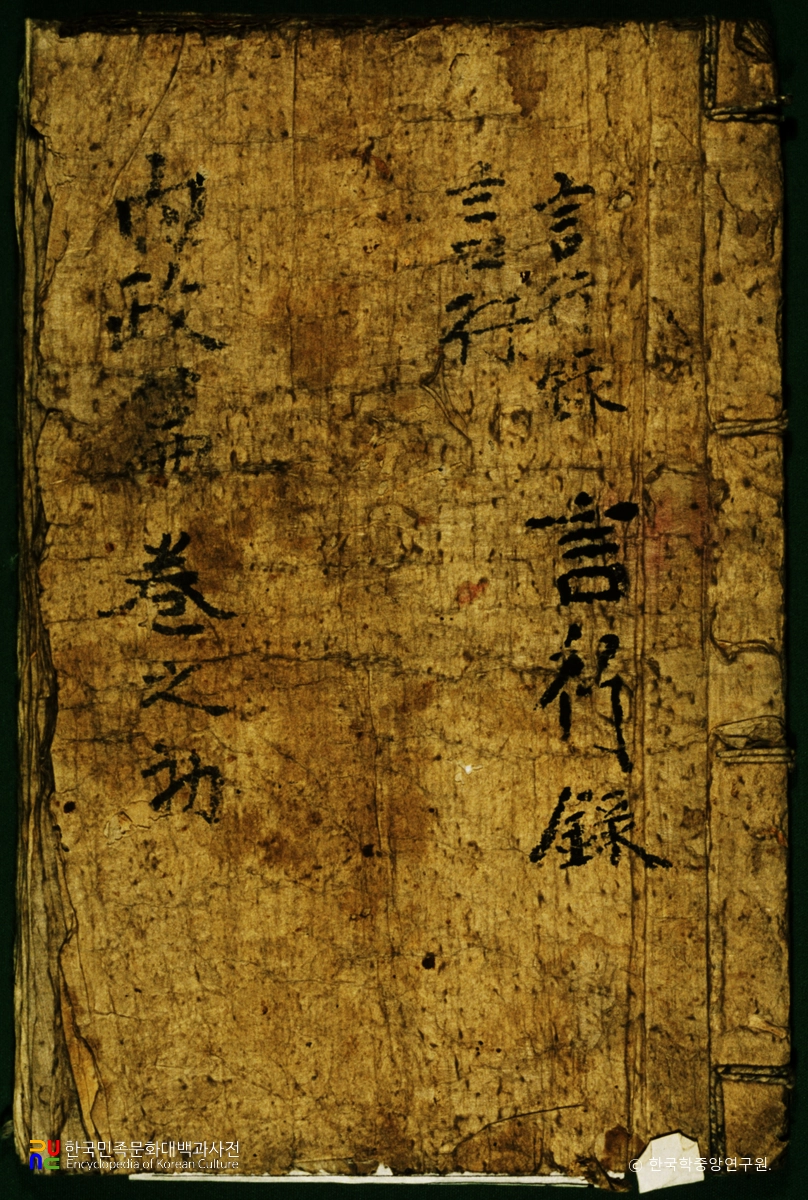 言行錄 言行錄
言行
內政 卷之初
한국민족문화대백과사전
Encyclopedia of Korean Culture
© 한국학중앙연구원.